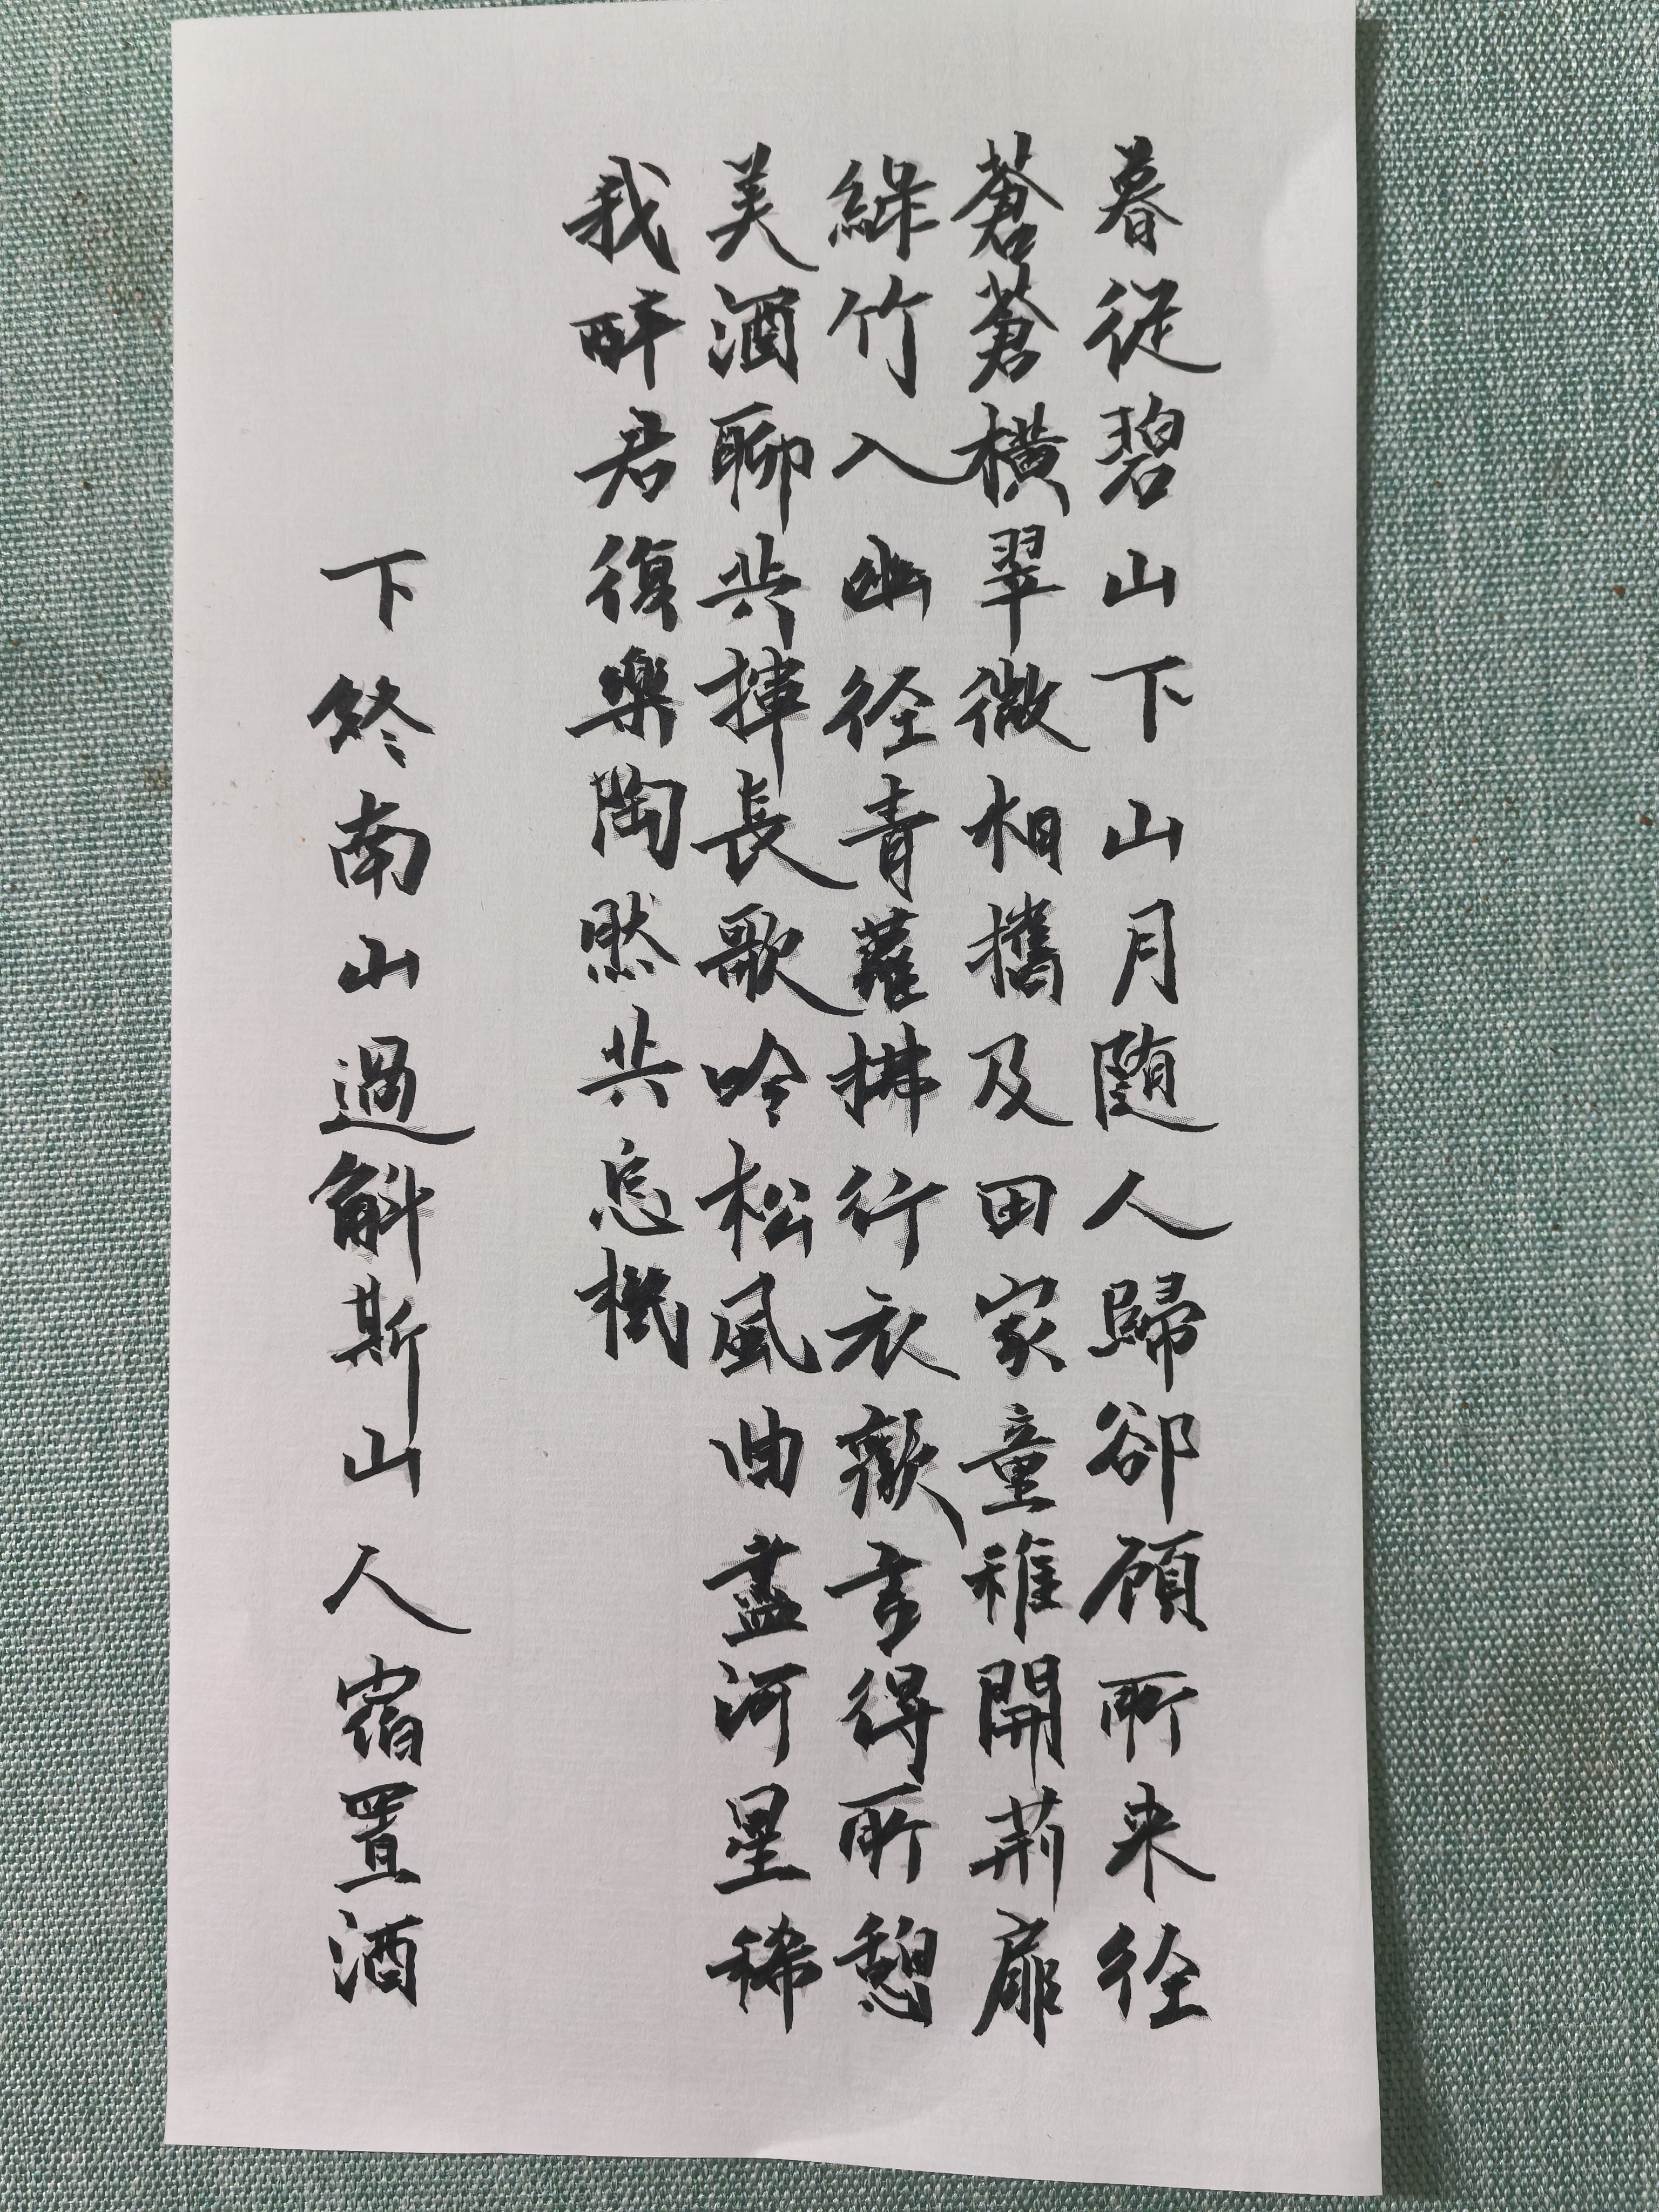 暮從碧山下山月随人歸卻顧所来径
蒼蒼橫翠微相攜及田家童稚開荊扉
綠竹入幽径青蘿拂行衣歡言得所憩
美酒聊共揮長歌吟松風曲盡河星稀
我醉君復樂陶然共忘機
下終南山過斛斯山人宿置酒